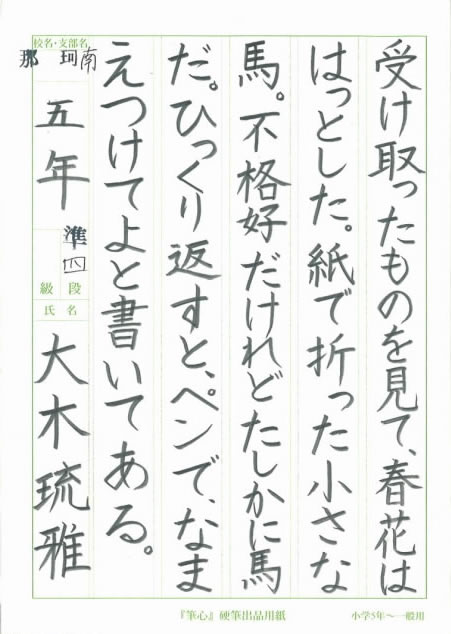 受け取ったものを見て、春花は
はっとした。紙で折った小さな
馬。不格好だけれどたしかに馬
だ。ひっくり返すと、ペンで、なま
えつけてよと書いてある。
校名・支部名
那珂南
五年
準四
級段
氏名
大木琉雅
『筆心』硬筆出品用紙
小学5年～一般用